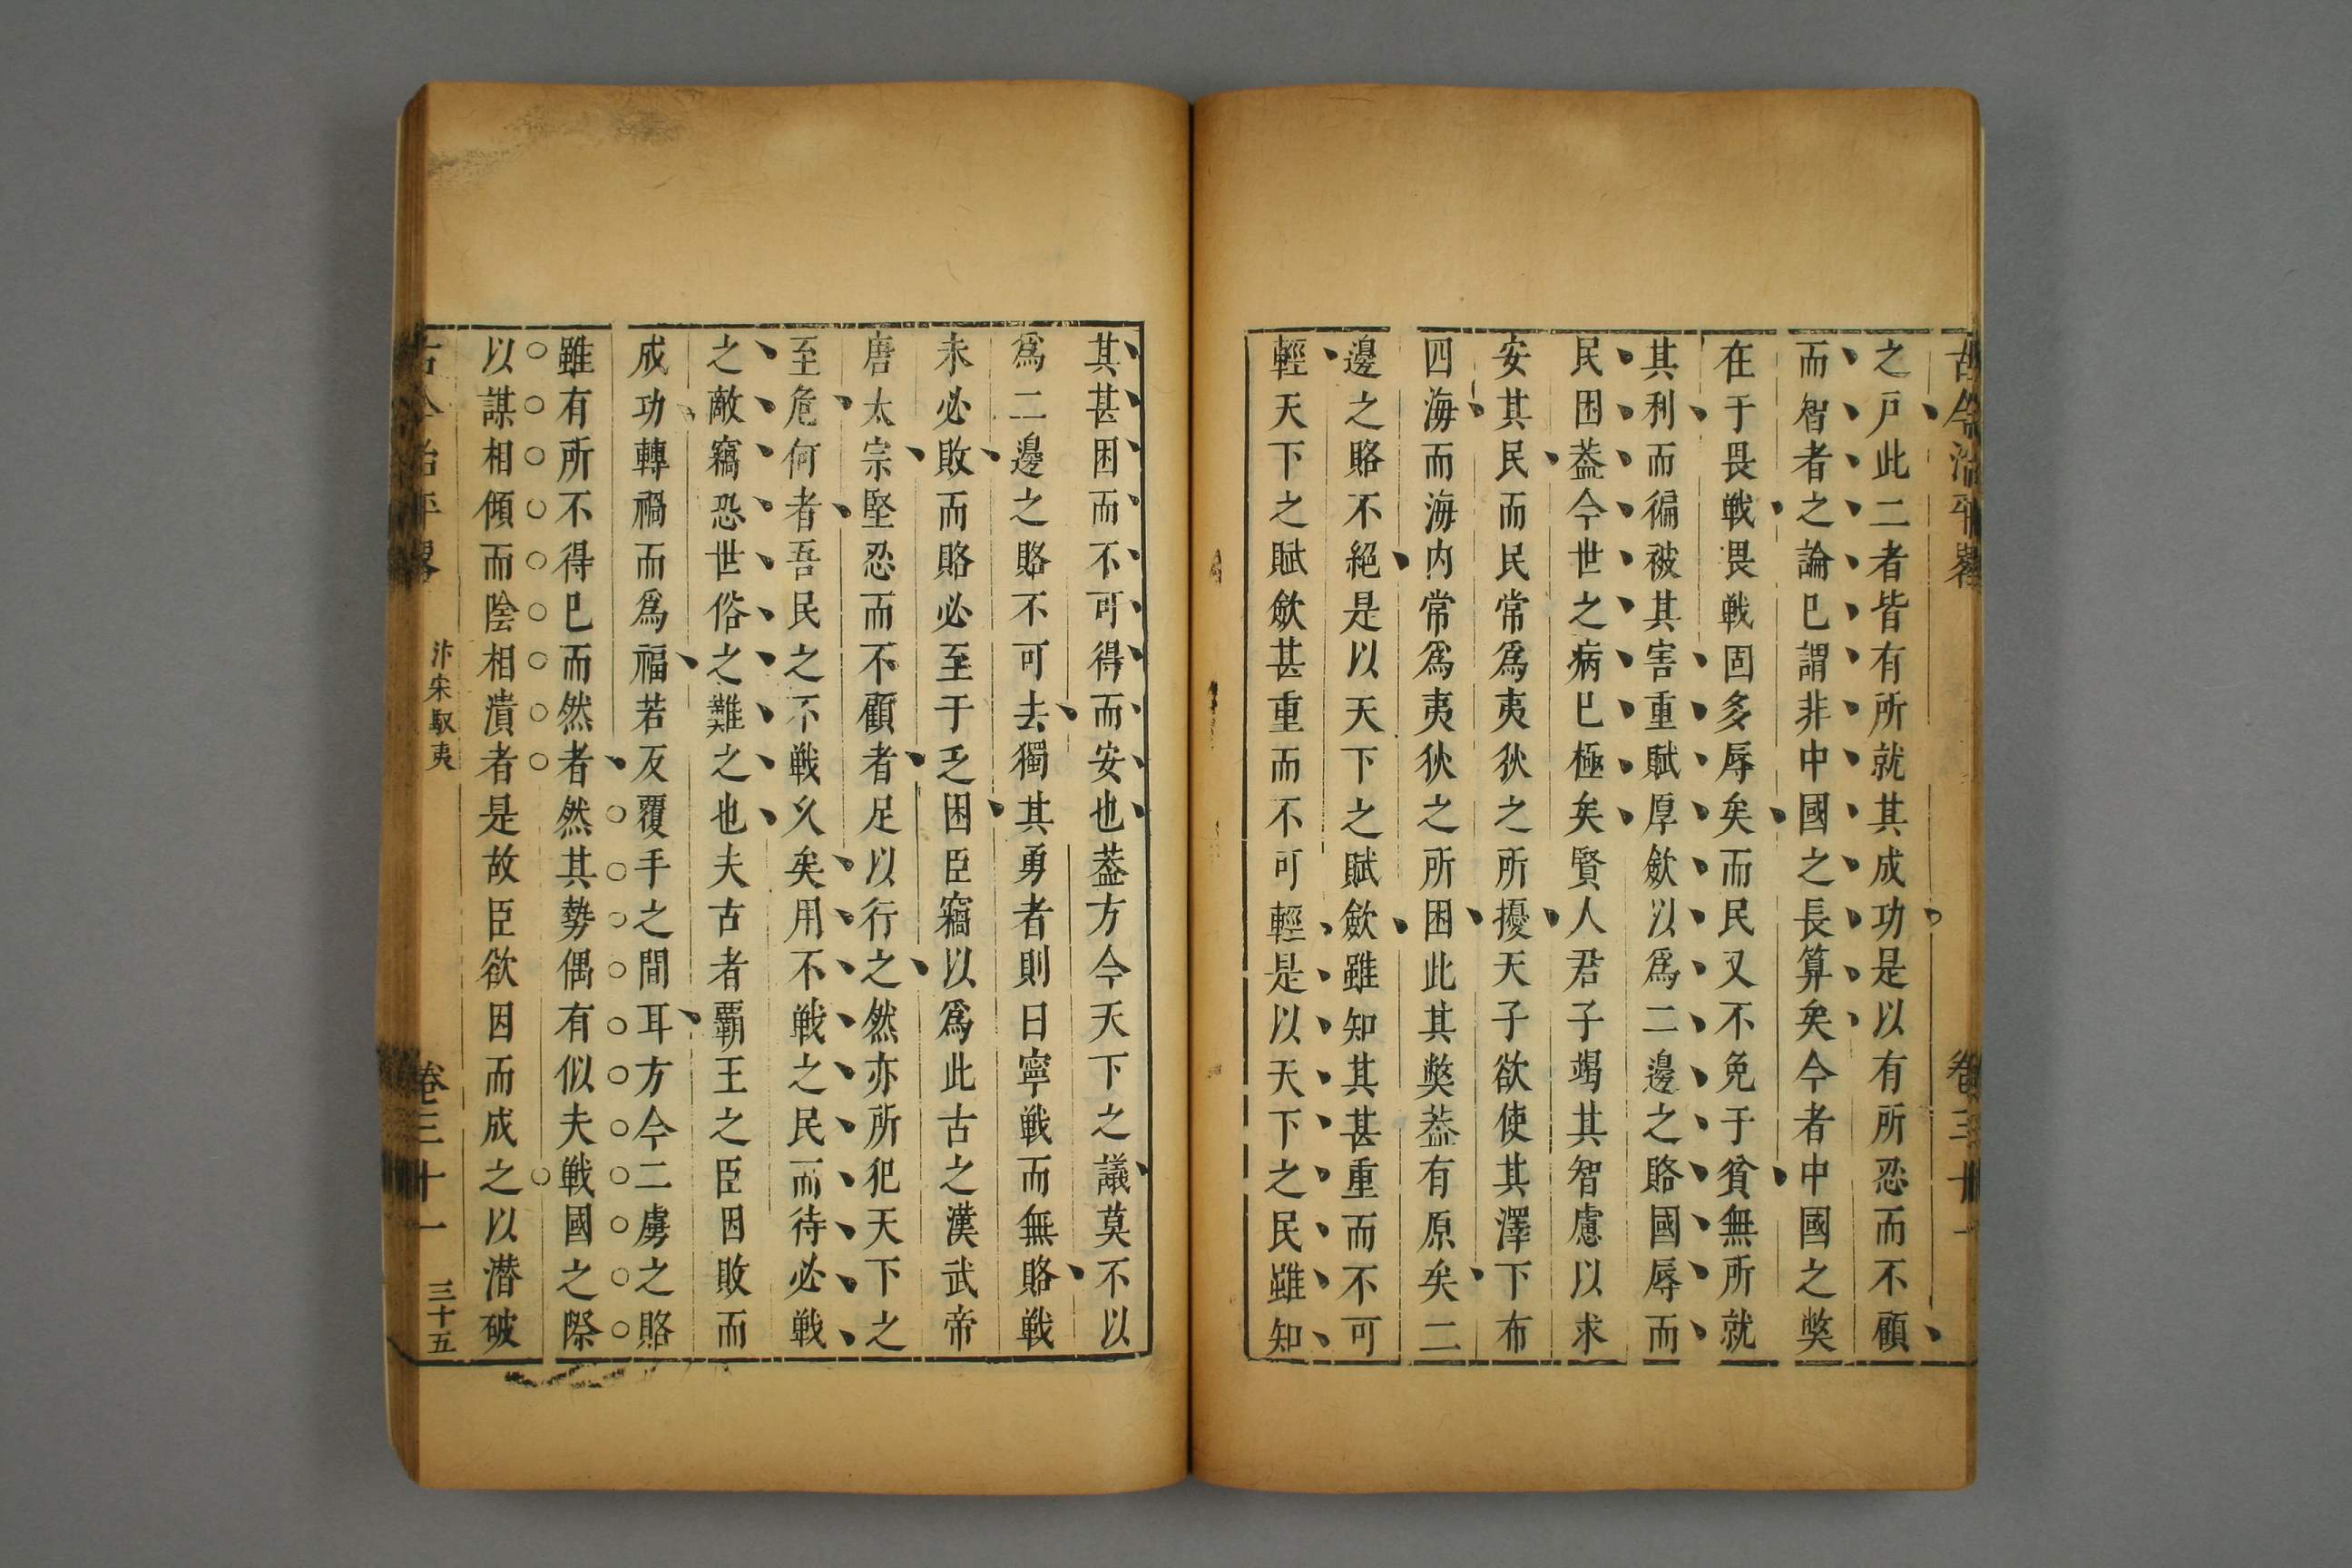 古今治平畧 卷三十一
之戸此二者皆有所就其成功是以有所忍而不顧
而智者之論已謂非中國之長算矣今者中國之獘
在于畏戦畏戦固多辱矣而民又不免于貧無所就
其利而徧被其害重賦厚歛以爲二邊之賂國辱而
民困葢今世之病已極矣賢人君子竭其智慮以求
安其民而民常爲夷狄之所擾天子欲使其澤下布
四海而海内常爲夷狄之所困此其獘葢有原矣二
邊之賂不絕是以天下之賦歛雖知其甚重而不可
輕天下之賦歛甚重而不可輕是以天下之民雖知
其甚困而不可得而安也葢方今天下之議莫不以
爲二邊之賂不可去獨其勇者則曰寧戦而無賂戦
未必敗而賂必至于乏困臣竊以爲此古之漢武帝
唐太宗堅忍而不顧者足以行之然亦所犯天下之
至危何者吾民之不戦久矣用不戦之民而待必戦
之敵竊恐世俗之難之也夫古者覇王之臣因敗而
成功轉禍而爲福若反覆手之間耳方今二虜之賂
雖有所不得已而然者然其勢偶有似夫戦國之際
以謀相傾而陰相潰者是故臣欲因而成之以潜破
古今治平畧 汴宋馭夷 卷三十一 三十五